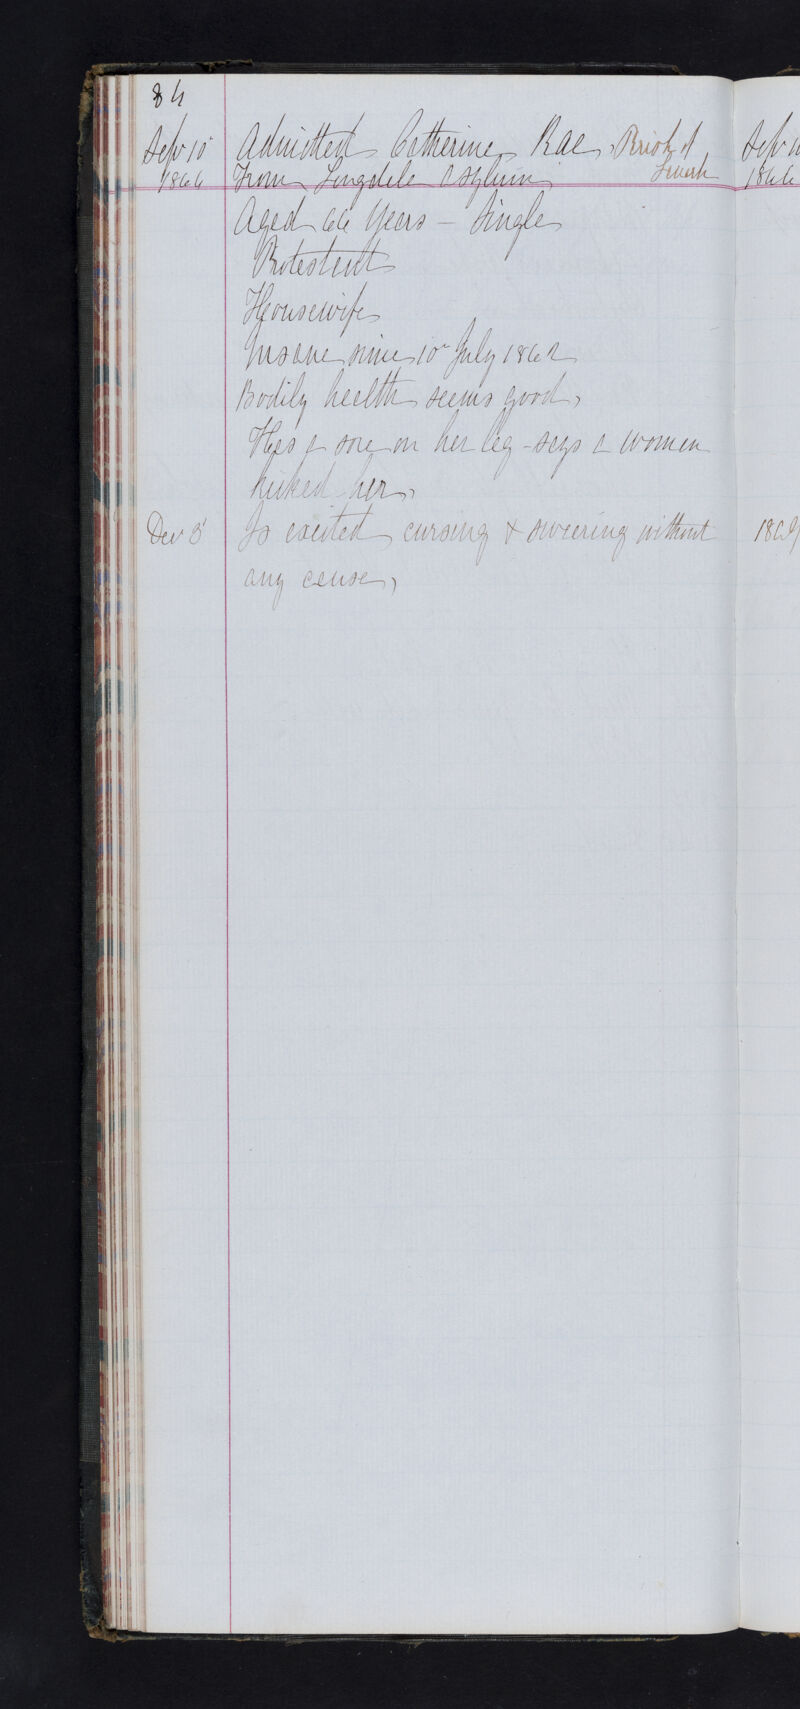 84
Sep 10 Admitted Catherine Rae, Parish of
1866 From Longdale Asylum
Aged 66 Years - Single
Protestant
Housewife
Insane since 10th July 1862
Bodily health seems good,
Has a sore on her leg - says a woman
kicked her,
Dec 3d Is excited, cursing & swearing without
any cause,
Sep 10
1866
186